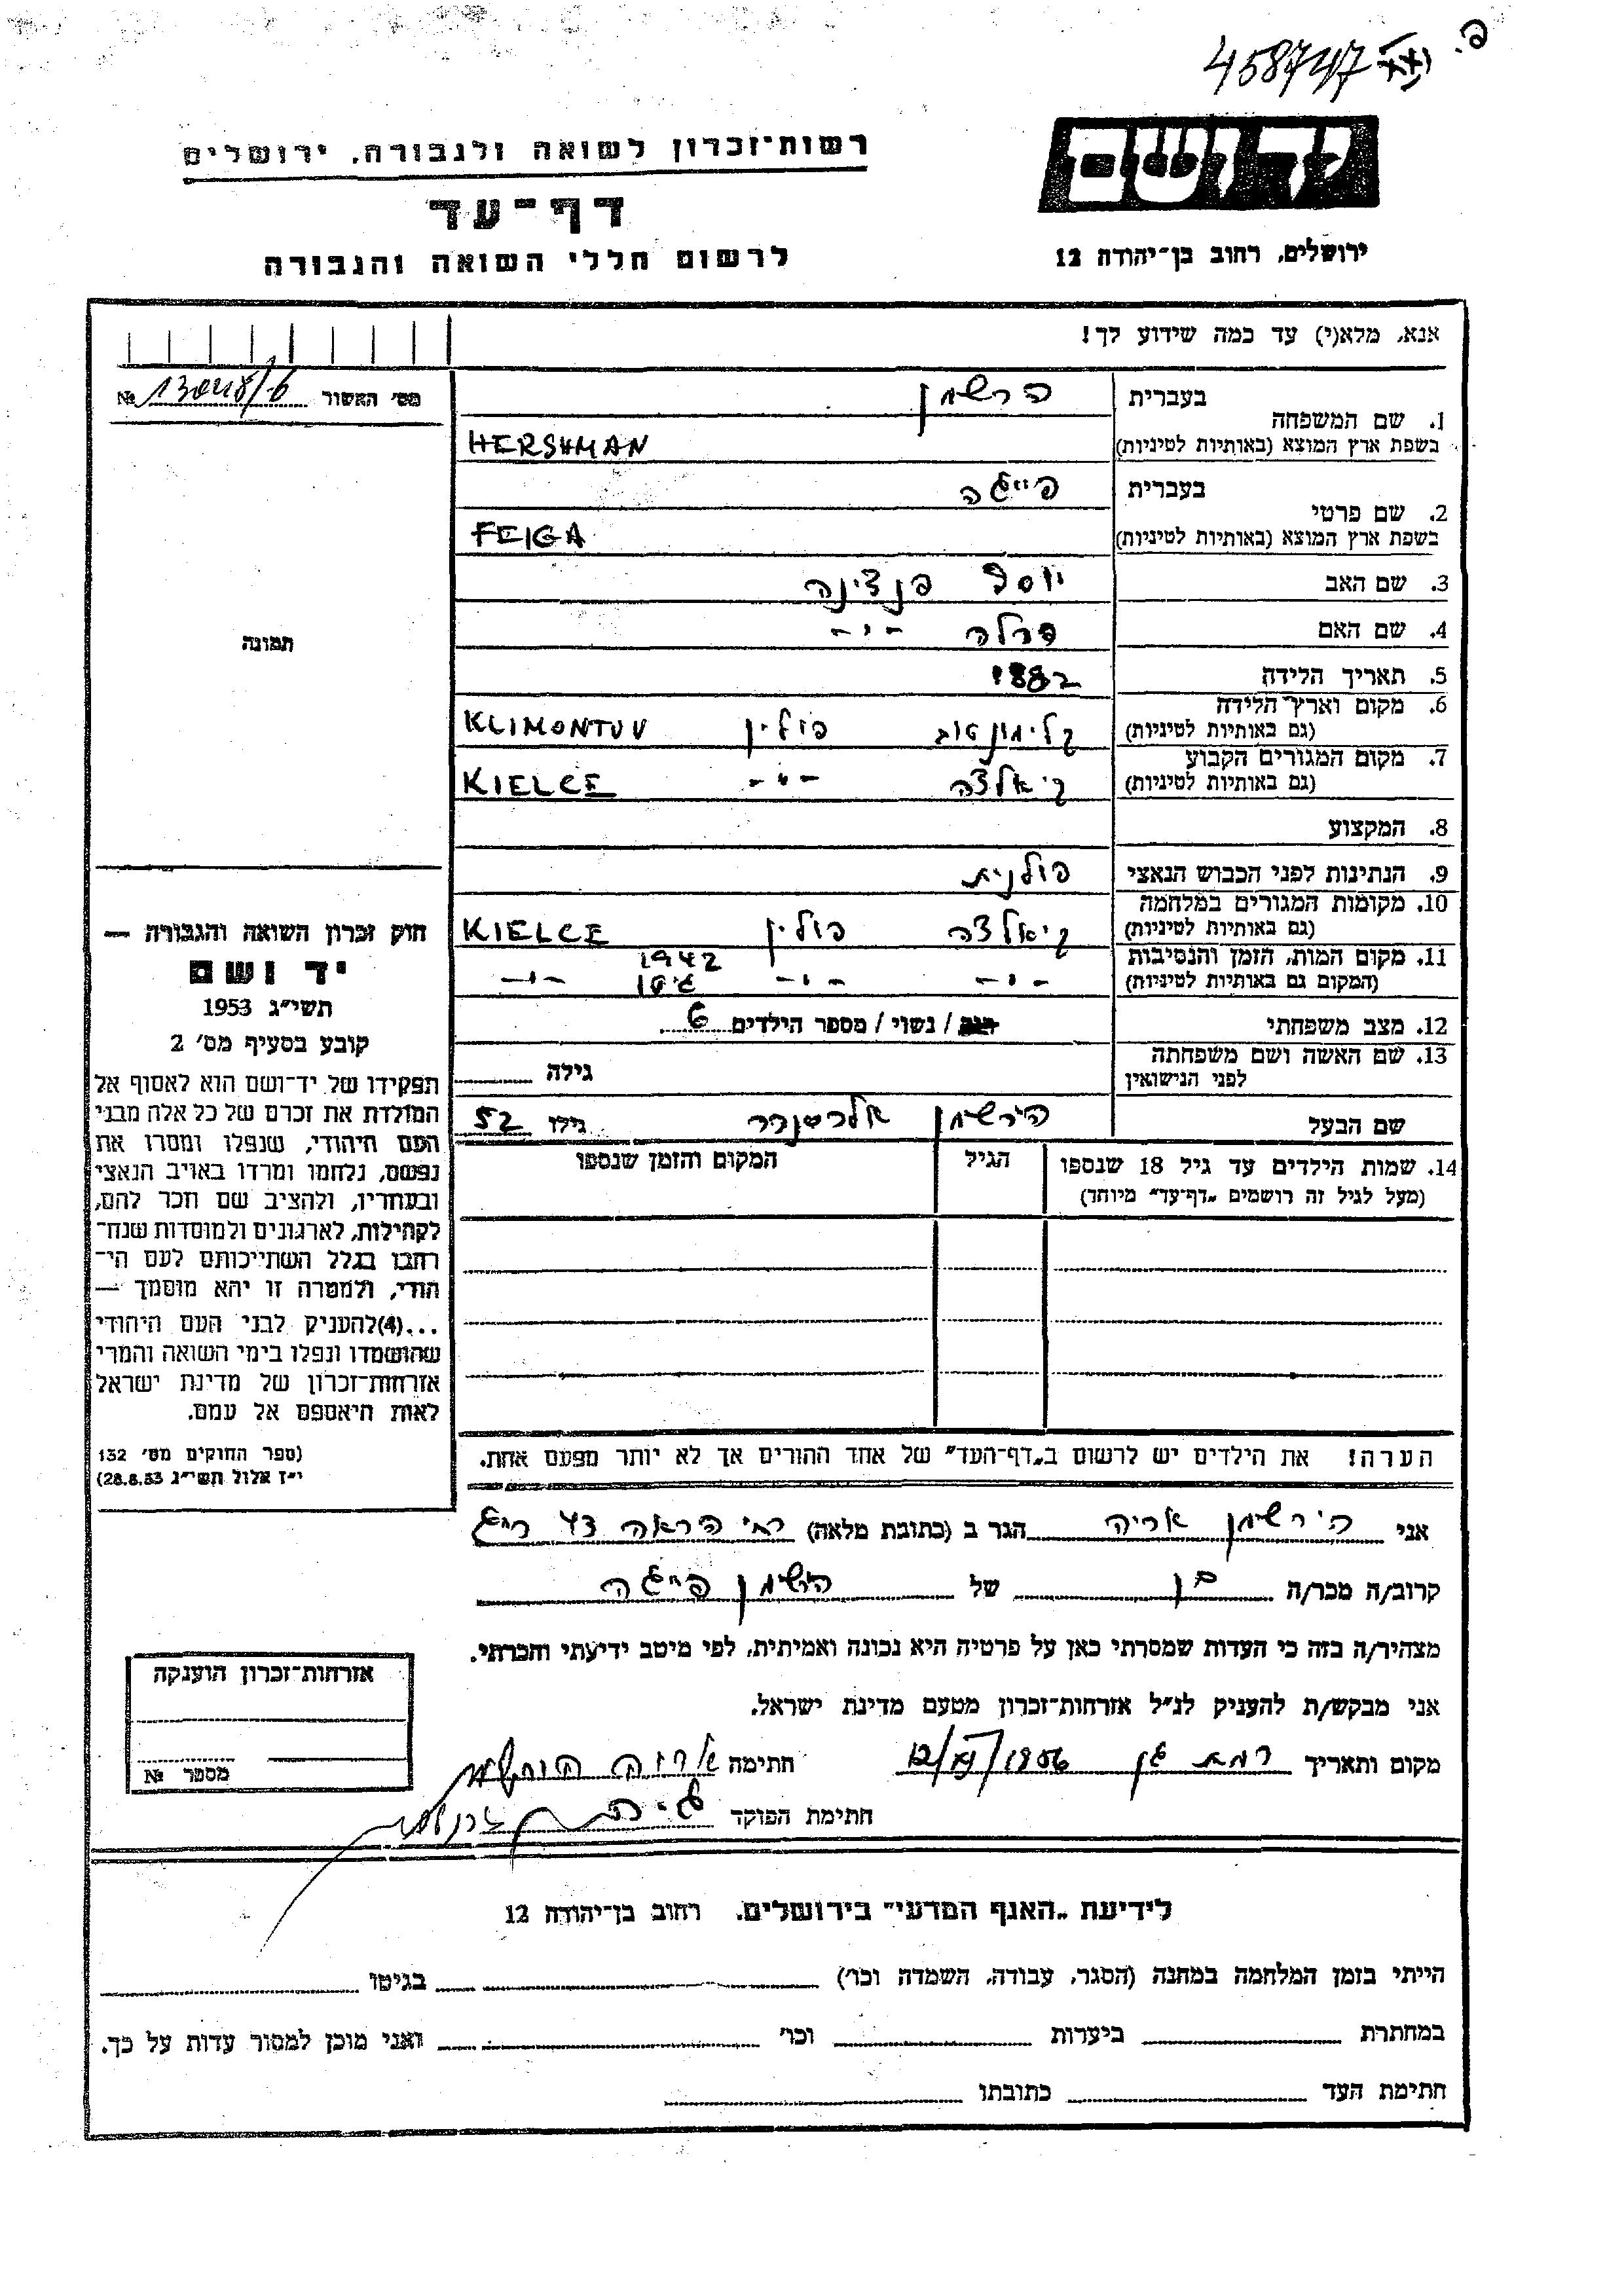 458747
יד ושם
ירושלים, רחוב בן־יהודה 12
רשות־זכרון לשואה ולגבורה, ירושלים
דף־עד
לרשום חללי השואה והגבורה
אנא, מלא(י) עד כמה שידוע לך!
מס׳ האשור №
1. שם המשפחה
בעברית הרשמן
בשפת ארץ המוצא (באותיות לטיניות) HERSHMAN
2. שם פרטי
בעברית פייגה
בשפת ארץ המוצא (באותיות לטיניות) FEIGA
3. שם האב יוסף
4. שם האם פרלה -״-
5. תאריך הלידה 1882
6. מקום וארץ הלידה
(גם באותיות לטיניות) קלימונטוב פולין KLIMONTUV
7. מקום המגורים הקבוע
(גם באותיות לטיניות) קיאלצה -״- KIELCE
8. המקצוע
9. הנתינות לפני הכבוש הנאצי פולנית
10. מקומות המגורים במלחמה
(גם באותיות לטיניות) קיאלצה פולין KIELCE
11. מקום המות, הזמן והנסיבות 1942
(המקום גם באותיות לטיניות) -״- -״- גיטו -״-
12. מצב משפחתי רוק / נשוי / מספר הילדים 6
13. שם האשה ושם משפחתה
לפני הנישואין גילה
שם הבעל הירשמן אלכסנדר גילו 52
14. שמות הילדים עד גיל 18 שנספו הגיל המקום והזמן שנספו
(מעל לגיל זה רושמים „דף־עד״ מיוחד)
הערה! את הילדים יש לרשום ב„דף־העד״ של אחד ההורים אך לא יותר מפעם אחת.
תמונה
חוק זכרון השואה והגבורה —
יד ושם
תשי״ג 1953
קובע בסעיף מס׳ 2
תפקידו של יד־ושם הוא לאסוף אל
המולדת את זכרם של כל אלה מבני
העם היהודי, שנפלו ומסרו את
נפשם, נלחמו ומרדו באויב הנאצי
ובעוזריו, ולהציב שם וזכר להם,
לקהילות, לארגונים ולמוסדות שנח־
רבו בגלל השתייכותם לעם הי־
הודי, ולמטרה זו יהא מוסמך —
...(4)להעניק לבני העם היהודי
שהושמדו ונפלו בימי השואה והמרי
אזרחות־זכרון של מדינת ישראל
לאות היאספם אל עמם.
(ספר החוקים מס׳ 132
י״ז אלול תשי״ג 28.8.53)
אני הירשמן אריה הגר ב (כתובת מלאה) רח׳ הראה
קרוב/ה מכר/ה בן של הירשמן פייגה
מצהיר/ה בזה כי העדות שמסרתי כאן על פרטיה היא נכונה ואמיתית, לפי מיטב ידיעתי והכרתי.
אני מבקש/ת להעניק לנ״ל אזרחות־זכרון מטעם מדינת ישראל.
מקום ותאריך רמת גן חתימה
חתימת הפוקד
אזרחות־זכרון הוענקה
מספר №
לידיעת „האגף המדעי״ בירושלים, רחוב בן־יהודה 12
הייתי בזמן המלחמה במחנה (הסגר, עבודה, השמדה וכו׳) בגיטו
במחתרת ביערות וכו׳ ואני מוכן למסור עדות על כך.
חתימת העד כתובתו